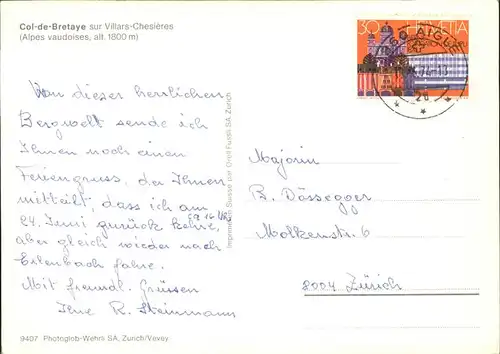 Col-de-Bretaye sur Villars-Chesières
(Alpes vaudoises, alt. 1800 m)
Von dieser herrlichen
Bergwelt sende ich
Ihnen noch einen
Feriengruss, der Ihnen
mitteilt, dass ich am
24. Juni zurück kehre,
aber gleich wieder nach
Erlenbach fahre.
Mit freundl. Grüssen
Ihre R. Steinmann
9407 Photoglob-Wehrli SA, Zurich/Vevey
Imprimé en Suisse par Orell Füssli SA, Zurich
30 HELVETIA
1860 AIGLE
Majorin
R. Dössegger
Molkenstr. 6
8004 Zürich